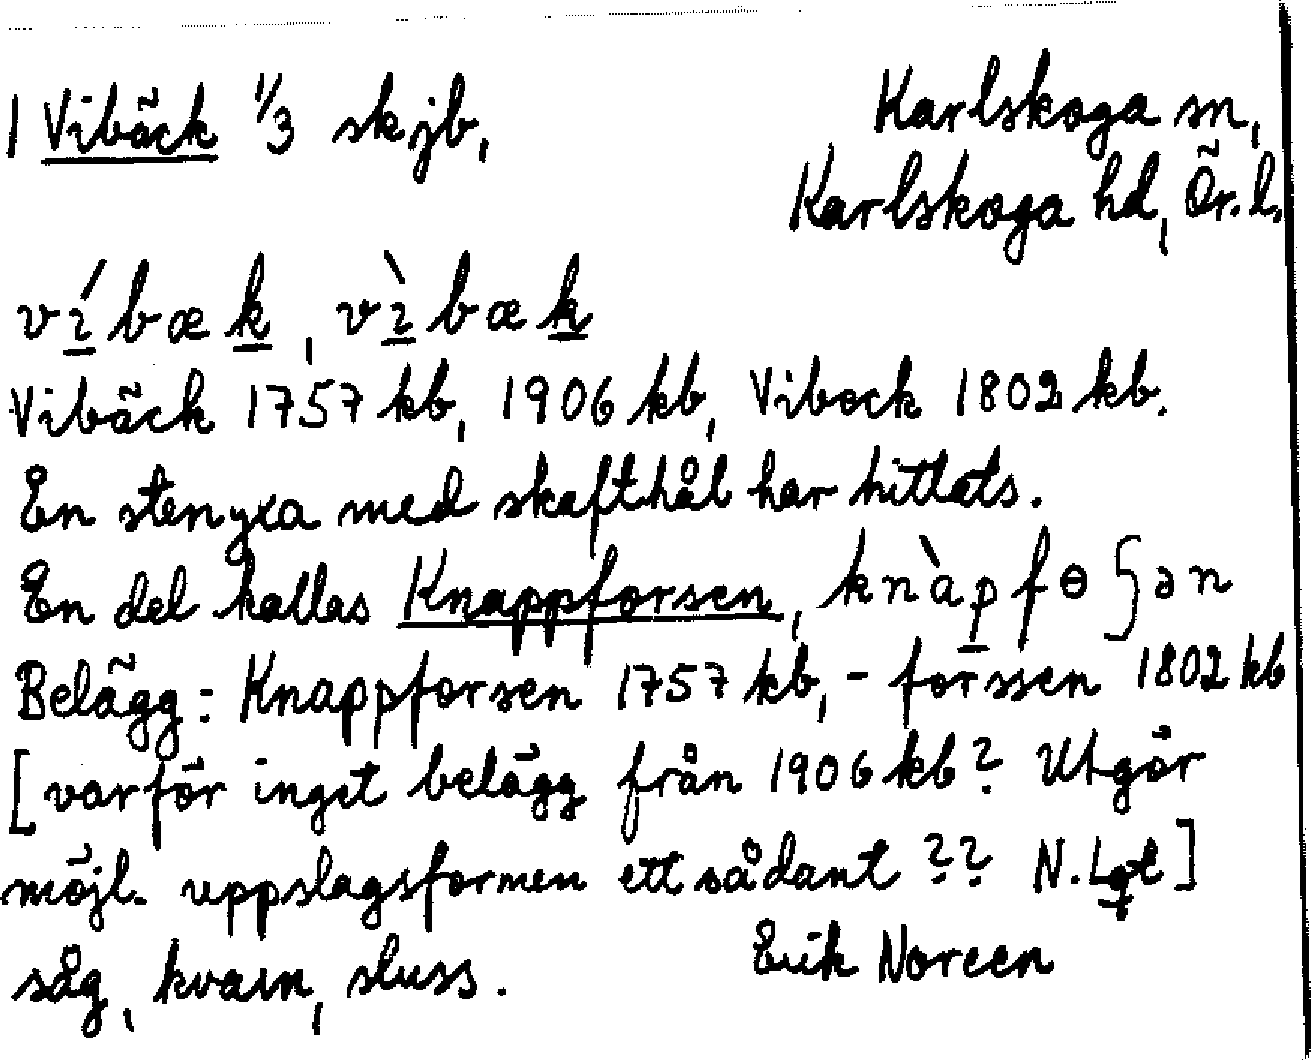 1 Vibäck 1/3 skjb,
Karlskoga sn,
Karlskoga hd, Ör.l.
víbæk, vìbæk
Vibäck 1757 kb, 1906 kb, Vibeck 1802 kb.
En stenyxa med skafthål har hittats.
En del kallas Knappforsen, knàpfɵʃən
Belägg: Knappforsen 1757 kb, - forssen 1802 kb
[varför inget belägg från 1906 kb? Utgör
möjl. uppslagsformen ett sådant ?? N.Lgt]
såg, kvarn, sluss.
Erik Noreen